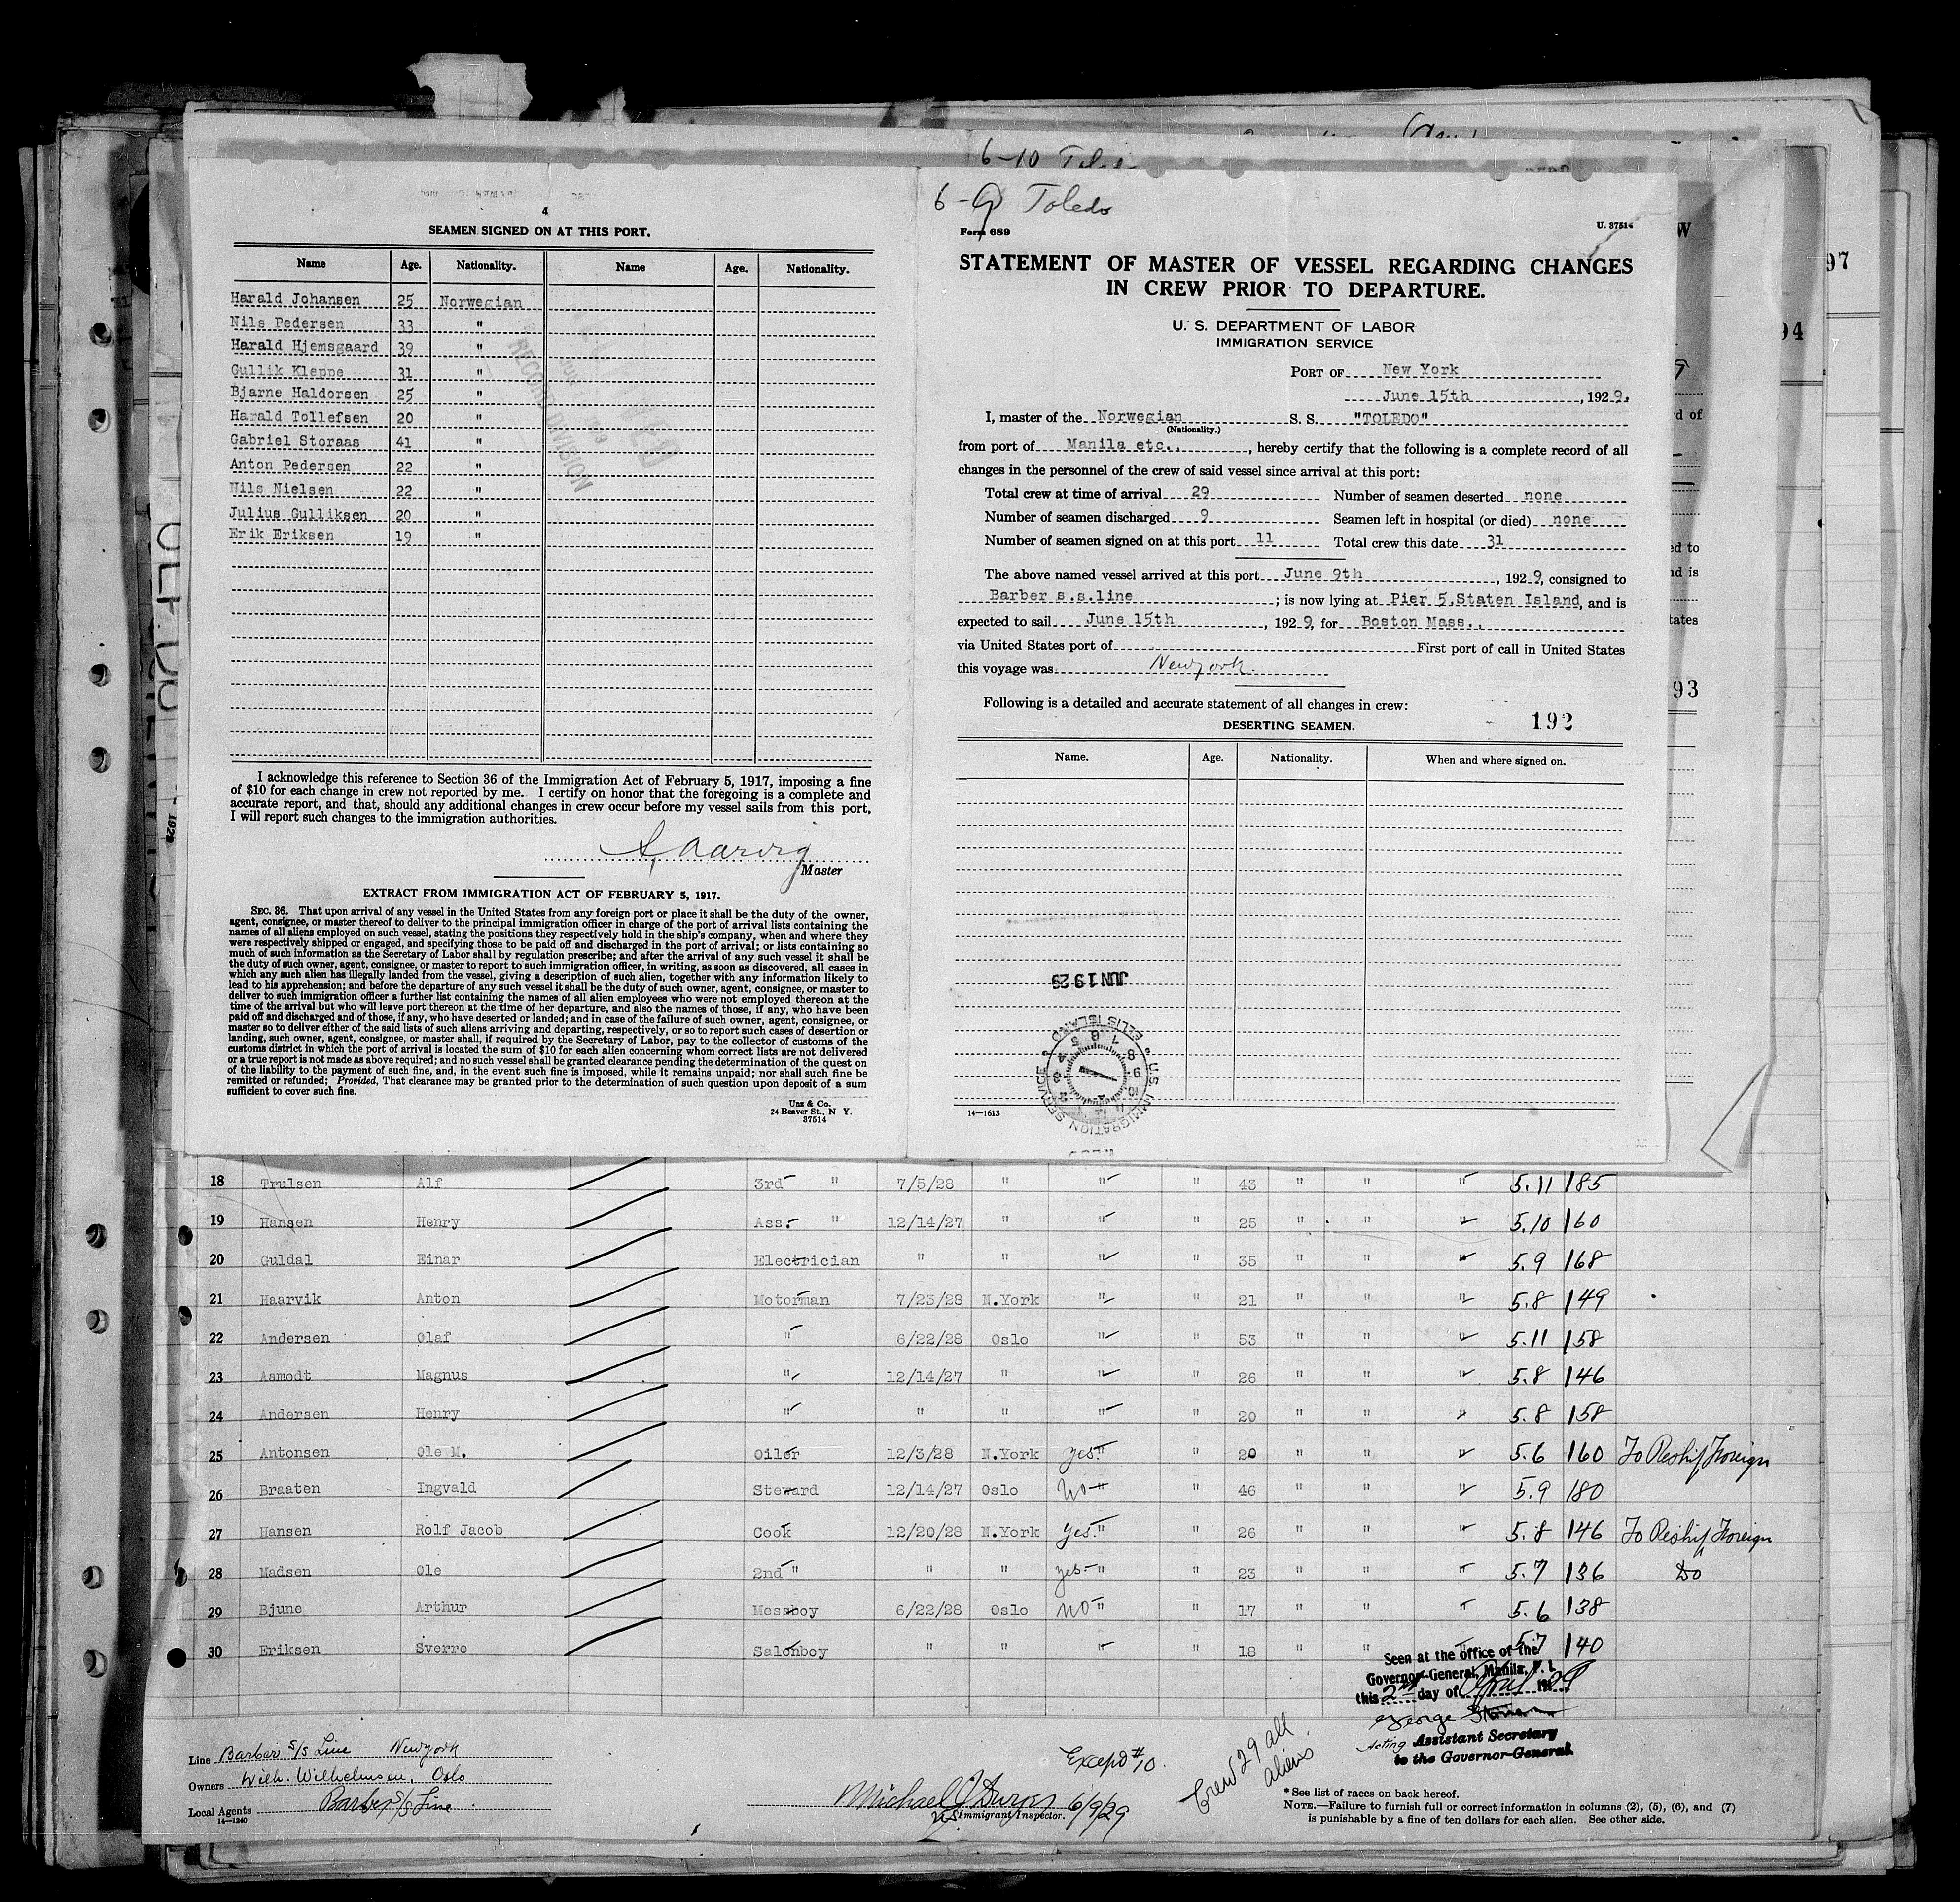 6-10
6-9 Toledo
4
SEAMEN SIGNED ON AT THIS PORT.
Name Age. Nationality. Name Age. Nationality.
Harald Johansen 25 Norwegian
Nils Pedersen 33 "
Harald Hjemsgaard 39 "
Gullik Kleppe 31 "
Bjarne Haldorsen 25 "
Harald Tollefsen 20 "
Gabriel Storaas 41 "
Anton Pedersen 22 "
Nils Nielsen 22 "
Julius Gulliksen 20 "
Erik Eriksen 19 "
RECORD DIVISION
I acknowledge this reference to Section 36 of the Immigration Act of February 5, 1917, imposing a fine
of $10 for each change in crew not reported by me. I certify on honor that the foregoing is a complete and
accurate report, and that, should any additional changes in crew occur before my vessel sails from this port,
I will report such changes to the immigration authorities.
Master
EXTRACT FROM IMMIGRATION ACT OF FEBRUARY 5, 1917.
SEC. 36. That upon arrival of any vessel in the United States from any foreign port or place it shall be the duty of the owner,
agent, consignee, or master thereof to deliver to the principal immigration officer in charge of the port of arrival lists containing the
names of all aliens employed on such vessel, stating the positions they respectively hold in the ship's company, when and where they
were respectively shipped or engaged, and specifying those to be paid off and discharged in the port of arrival; or lists containing so
much of such information as the Secretary of Labor shall by regulation prescribe; and after the arrival of any such vessel it shall be
the duty of such owner, agent, consignee, or master to report to such immigration officer, in writing, as soon as discovered, all cases in
which any such alien has illegally landed from the vessel, giving a description of such alien, together with any information likely to
lead to his apprehension; and before the departure of any such vessel it shall be the duty of such owner, agent, consignee, or master to
deliver to such immigration officer a further list containing the names of all alien employees who were not employed thereon at the
time of the arrival but who will leave port thereon at the time of her departure, and also the names of those, if any, who have been
paid off and discharged and of those, if any, who have deserted or landed; and in case of the failure of such owner, agent, consignee, or
master so to deliver either of the said lists of such aliens arriving and departing, respectively, or so to report such cases of desertion or
landing, such owner, agent, consignee, or master shall, if required by the Secretary of Labor, pay to the collector of customs of the
customs district in which the port of arrival is located the sum of $10 for each alien concerning whom correct lists are not delivered
or a true report is not made as above required; and no such vessel shall be granted clearance pending the determination of the quest on
of the liability to the payment of such fine, and, in the event such fine is imposed, while it remains unpaid; nor shall such fine be
remitted or refunded; Provided, That clearance may be granted prior to the determination of such question upon deposit of a sum
sufficient to cover such fine.
Unz & Co.
24 Beaver St., N Y.
37514
Form 689 U. 37514
STATEMENT OF MASTER OF VESSEL REGARDING CHANGES
IN CREW PRIOR TO DEPARTURE.
U. S. DEPARTMENT OF LABOR
IMMIGRATION SERVICE
PORT OF New York
June 15th, 1929.
I, master of the Norwegian S. S. "TOLEDO"
(Nationality.)
from port of Manila etc., , hereby certify that the following is a complete record of all
changes in the personnel of the crew of said vessel since arrival at this port:
Total crew at time of arrival 29 Number of seamen deserted none
Number of seamen discharged 9 Seamen left in hospital (or died) none
Number of seamen signed on at this port 11 Total crew this date 31
The above named vessel arrived at this port June 9th, 1929, consigned to
Barber s.s.line; is now lying at Pier 5,Staten Island, and is
expected to sail June 15th, 1929, for Boston Mass.,
via United States port of First port of call in United States
this voyage was Newyork.
Following is a detailed and accurate statement of all changes in crew:
DESERTING SEAMEN. 192
Name. Age. Nationality. When and where signed on.
JUN 19 29
U.S. IMMIGRATION SERVICE ELLIS ISLAND
14—1613
97
94
93
18 Trulsen Alf 3rd " 7/5/28 " " " 43 " " " 5.11 185
19 Hansen Henry Ass. " 12/14/27 " " " 25 " " " 5.10 160
20 Guldal Einar Electrician " " " " 35 " " " 5.9 168
21 Haarvik Anton Motorman 7/23/28 N.York " " 21 " " " 5.8 149
22 Andersen Olaf " 6/22/28 Oslo " " 53 " " " 5.11 158
23 Aamodt Magnus " 12/14/27 " " " 26 " " " 5.8 146
24 Andersen Henry " " " " " 20 " " " 5.8 158
25 Antonsen Ole M. Oiler 12/3/28 N.York yes " " 20 " " " 5.6 160 To Reship Foreign
26 Braaten Ingvald Steward 12/14/27 Oslo No " " 46 " " " 5.9 180
27 Hansen Rolf Jacob Cook 12/20/28 N.York Yes " " 26 " " " 5.8 146 To Reship Foreign
28 Madsen Ole 2nd " " " yes " " 23 " " " 5.7 136 Do
29 Bjune Arthur Messboy 6/22/28 Oslo NO " " 17 " " " 5.6 138
30 Eriksen Sverre Salonboy " " " " 18 " " " 5.7 140
Seen at the office of the
Governor-General, Manila, P. I.
this 2nd day of April 1929
George
Acting Assistant Secretary
to the Governor-General.
Line Barber S/S Line Newyork
Owners Wilh. Wilhelmsen, Oslo
Local Agents Barber S/S Line
14—1240
Except #10.
Crew 29 all
aliens
Michael J. 6/9/29
Immigrant Inspector.
* See list of races on back hereof.
NOTE.—Failure to furnish full or correct information in columns (2), (5), (6), and (7)
is punishable by a fine of ten dollars for each alien. See other side.